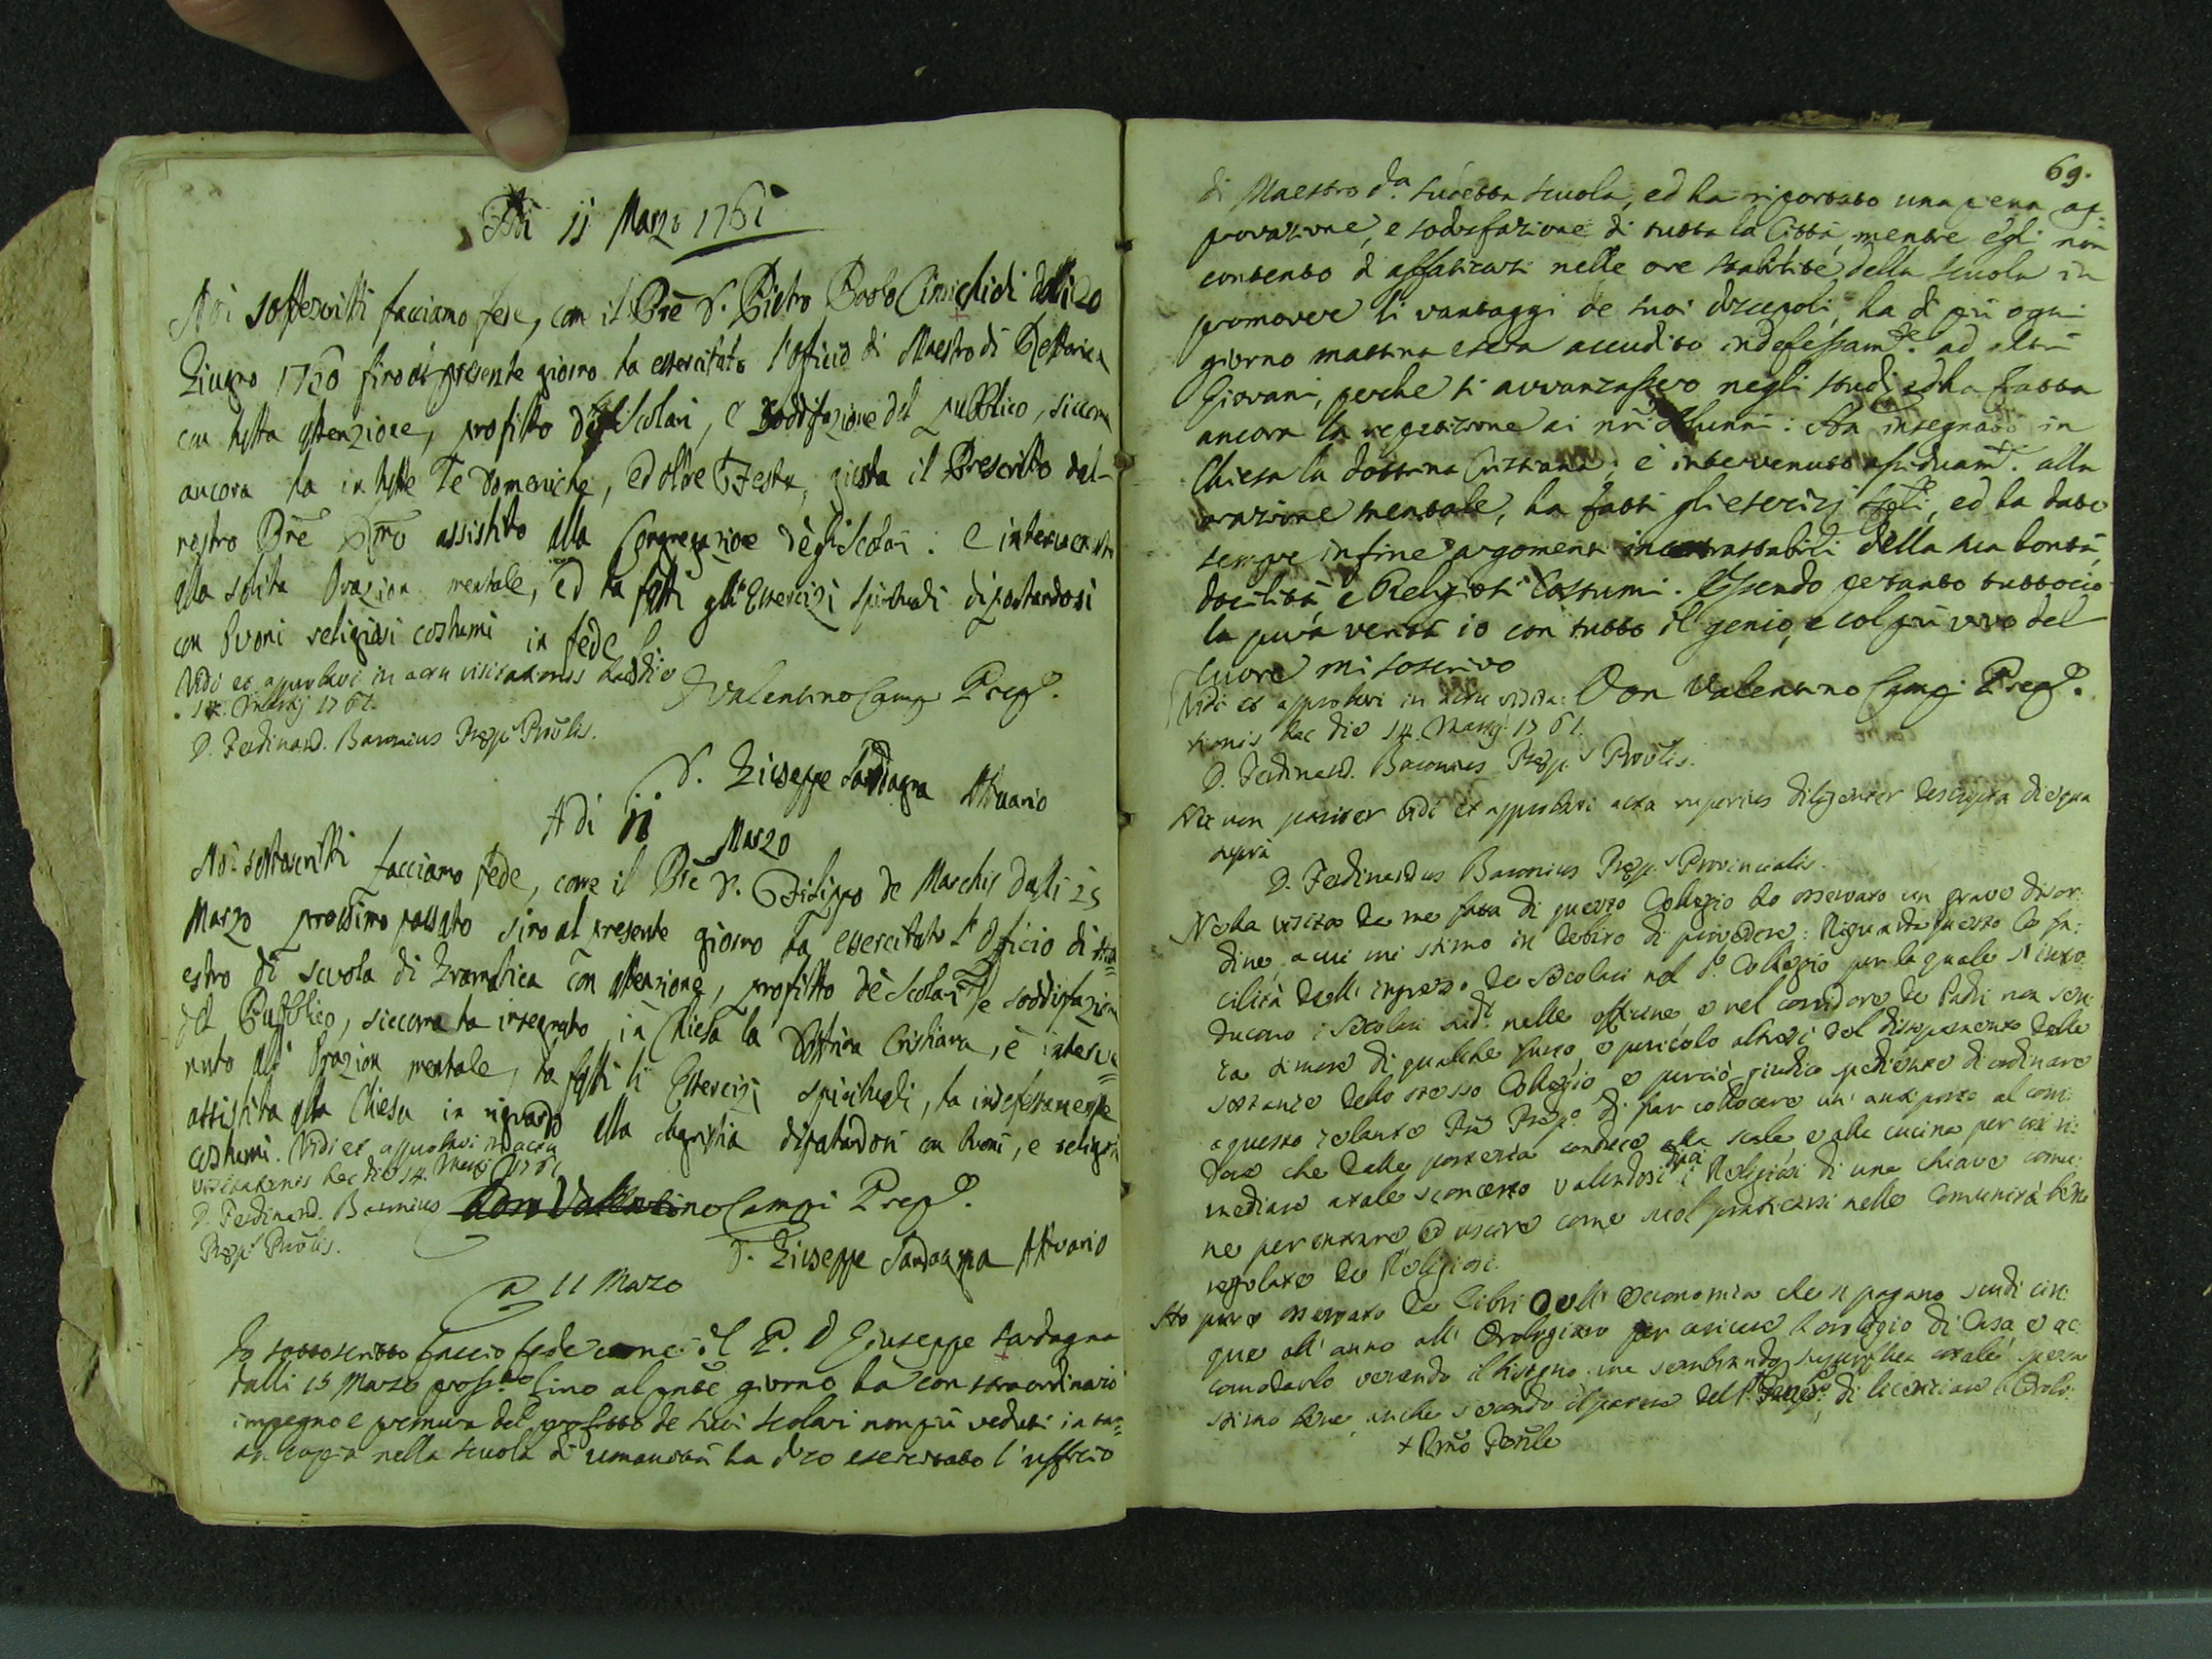 Adi 11 Marzo 1761
Noi sottoscritti facciamo fede, com il Pre D. Pietro Paolo Cinichidi dalli 20
Giugno 1760 sino al presente giorno ha essercitato l'officio di Maestro di Rettorica
con tutta attenzione, profitto degli Scolari, e soddisfazione del pubblico, siccome
ancora ha in tutte le Domeniche, ed oltre Feste, giusta il Prescritto dal
nostro Pre Rmo assistito alla Congregazione degli Scolari: e intervenuto
alla solita Orazion mentale, ed ha fatti gli Essercizi Spirituali diportandosi
con buoni religiosi costumi in fede
Vidi et approbavi in actu visitationis hac die
14. Martij 1761.
D. Ferdinand. Baronius Præp.s Proulis.
D Valentino Campi Prep.o
D. Giuseppe Sardagna Attuario
Adi 11 Marzo
Noi sottoscritti facciamo fede, come il Pre D. Filippo de Marchis dalli 25
Marzo prossimo passato sino al presente giorno ha essercitato l'Officio di Ma=
estro di scuola di Gramatica con attenzione, profitto de Scolari, e soddisfazione
del Pubblico, siccome ha insegnato in Chiesa la Dottrina Cristiana, è interve=
nuto all' Orazion mentale, ha fatti li Essercizi spirituali, ha indefessamente
assistito alla Chiesa in riguardo alla diportandosi con buoni, e religiosi
costumi. Vidi et approbavi in actu
visitationis hac die 14. Martij 1761
D. Ferdinand. Baronius
Præp.s Proulis.
Don Valentino Campi Prep.o
D. Giuseppe Sardagna Attuario
A 11 Marzo
Io sottoscritto faccio fede come il P. D Giuseppe Sardagna
dalli 15 Marzo pross.o sino al pnte giorno ha con straordinario
impegno e premura del profitto de suoi scolari non più veduti in tan=
ta copia nella scuola di umanità ha esercitato l'ufficio
69.
di Maestro d.a sudetta scuola, ed ha riportato una piena ap=
provazione, e sodisfazione di tutta la Città, mentre egli non
contento d'affaticarsi nelle ore stabilite della scuola in
promovere li vantaggi de suoi discepoli, ha di più ogni
giorno mattina e sera accudito indefessam.te ad altri
Giovani, perche si avvanzassero negli studi, ed ha fatta
ancora la repetizione ai nri Alunni: Ha insegnato in
Chiesa la dottrina Cristiana; è intervenuto assiduam.te alla
orazione mentale, ha fatti gli esercizj spli, ed ha dato
sempre infine argomenti incontrastabili della sua bontà,
docilità, e Religiosi Costumi. Essendo pertanto tuttociò
la pura verità io con tutto il genio, e col più vivo del
cuore mi soscrivo
Don Valentino Campi Prep.o
Vidi et approbavi in actu visita:
tionis hac die 14. Martij 1761.
D. Ferdinand. Baronius Præp.s Proulis.
Nec non pariter vidi et approbavi acta superius diligenter descripta die qua
supra
D. Ferdinandus Baronius Præp.s Provincialis.
Nella visita da me fatta di questo Collegio ho osservato un grave disor:
dine, a cui mi stimo in debito di provedere: Riguarda questo la fa:
cilità dell' ingresso de Secolari nel d.o Collegio per la quale s'intro:
ducono i Secolari sud.i nelle officine e nel corridore de Padri non sen:
za timore di qualche furto, e pericolo altresì del dissipamento delle
sostanze dello stesso Collegio e perciò giudico spediente di ordinare
a questo zelante Pre Prep.o di far collocare un' antiporta al corri:
dore che dalla porteria conduce alla scala, e alla cucina per così ri:
mediare a tale sconcerto valendosi i Religiosi di una chiave comu:
ne per entrare ed uscire come suol praticarsi nelle Comunità bene
regolate de Religiosi.
Ho pure osservato da Libri dell' economia che si pagano scudi cin:
que all' anno all' Orologiaro per l'orologio di Casa e ac:
comodarlo venendo il bisogno, me sembrando superflua cotale spesa
stimo bene, anche secondo il parere del P. Prep.o, di licenziare l'Orolo:
+ Rmo Gñle